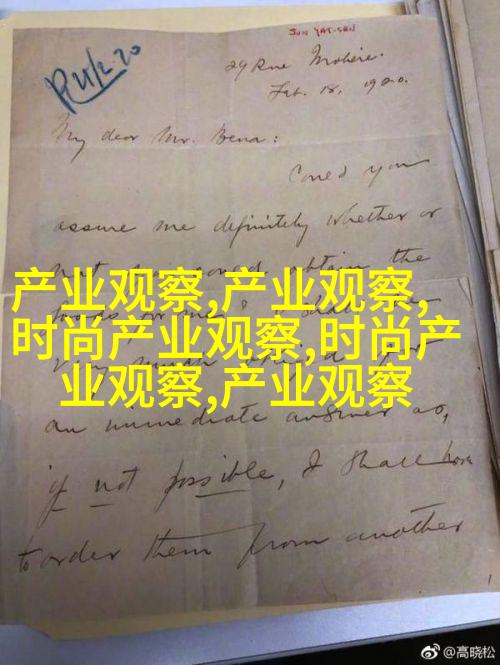 SUN YAT-SEN
R 4/2.20
29 Rue Molière.
Feb. 18, 1920.
My dear Mr. Bena:
Could you
assure me definitely whether or
not you could obtain the
产业观察,产业观察,
时尚产业观察,时尚产
业观察,产业观察
an immediate answer as,
if not possible, I shall have
to order them from another
@高晓松